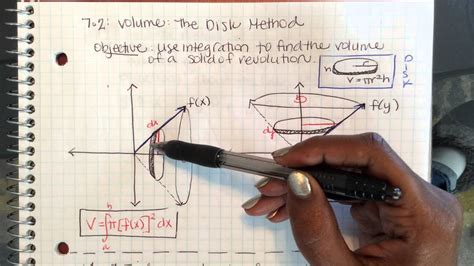 7.2: Volume: The Disk Method
Objective: Use integration to find the volume
of a solid of revolution.
h
r
V = πr²h
DISK
dx
f(x)
f(y)
dy
b
V = ∫π[f(x)]² dx
a